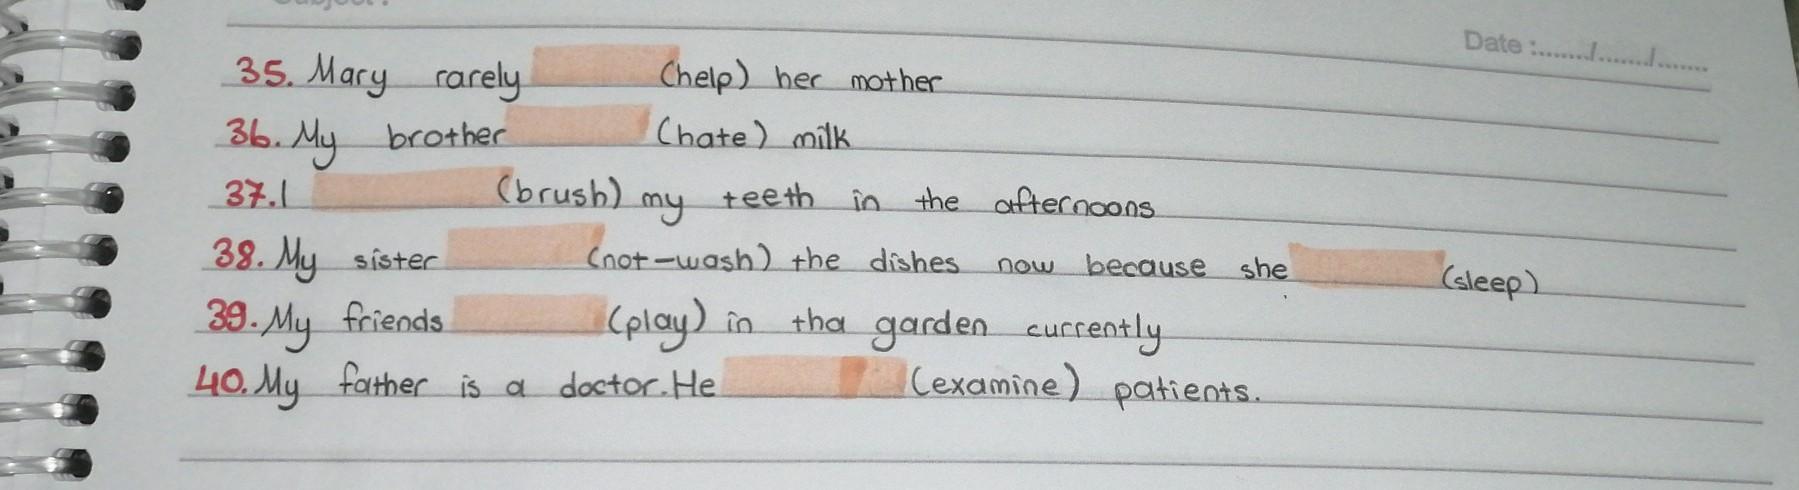 Date :......./......./.......
35. Mary rarely (help) her mother
36. My brother (hate) milk
37. I (brush) my teeth in the afternoons
38. My sister (not-wash) the dishes now because she (sleep)
39. My friends (play) in tha garden currently
40. My father is a doctor. He (examine) patients.